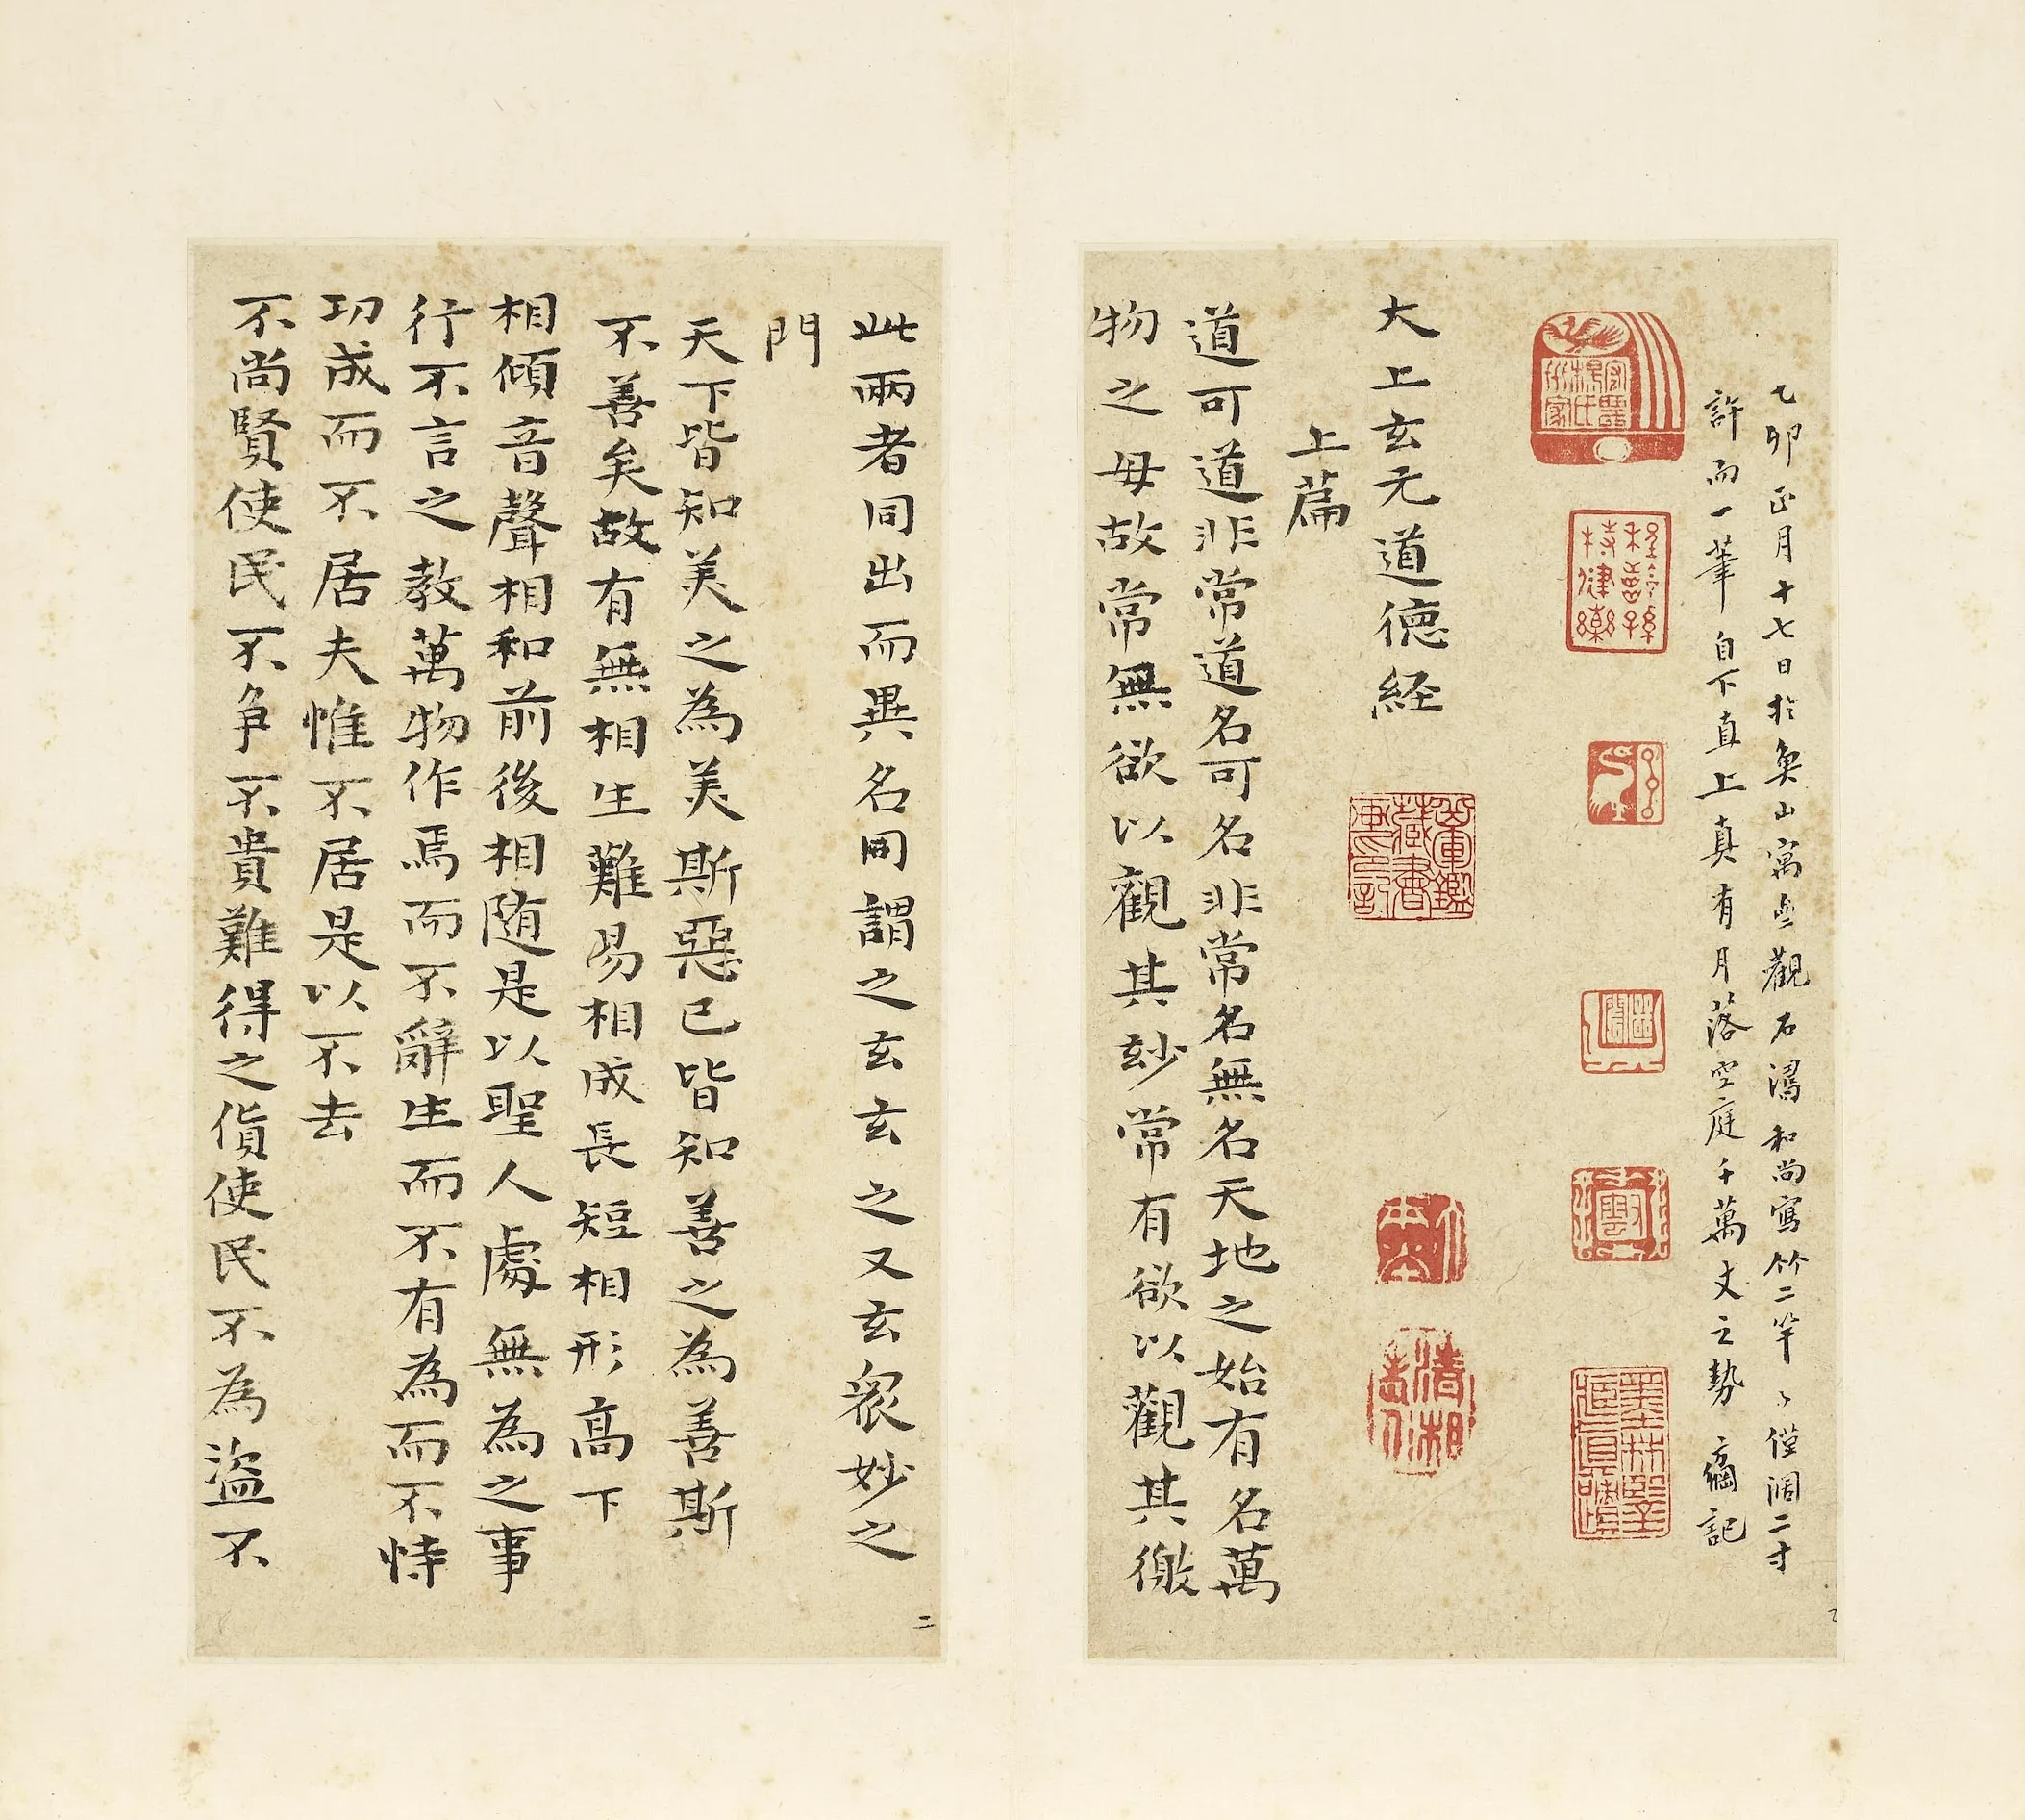 乙卯正月十七日於奐山寓無觀石濤和尚寫竹二竿々僅闊二寸
許而一筆自下直上真有月落空庭千萬丈之勢 䌾記
大上玄元道德経
上篇
道可道非常道名可名非常名無名天地之始有名萬
物之母故常無欲以觀其玅常有欲以觀其徼
此兩者同出而異名同謂之玄玄之又玄衆妙之
門
天下皆知美之為美斯惡已皆知善之為善斯
不善矣故有無相生難易相成長短相形高下
相傾音聲相和前後相随是以聖人處無為之事
行不言之教萬物作焉而不辭生而不有為而不恃
功成而不居夫惟不居是以不去
不尚賢使民不争不貴難得之貨使民不為盜不
二
清湘老人